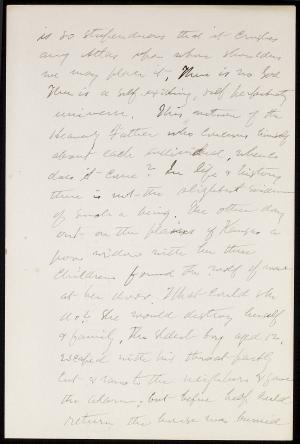 is so stupendous that it crushes
any Atlas upon whose shoulders
we may place it. There is no God
There is a self existing, self perpetuating
universe. This notion of the
Heavenly Father who concerns himself
about each individual, whence
does it come? In life & history
there is not the slightest evidence
of such a being. The other day
out on the plains of Kansas a
poor widow with her three
children found the wolf of want
at her door. What could she
do? She would destroy herself
& family, the eldest boy aged 12,
escaped with his throat partly
cut & ran to the neighbors & gave
the alarm; but before help could
return the house was burned